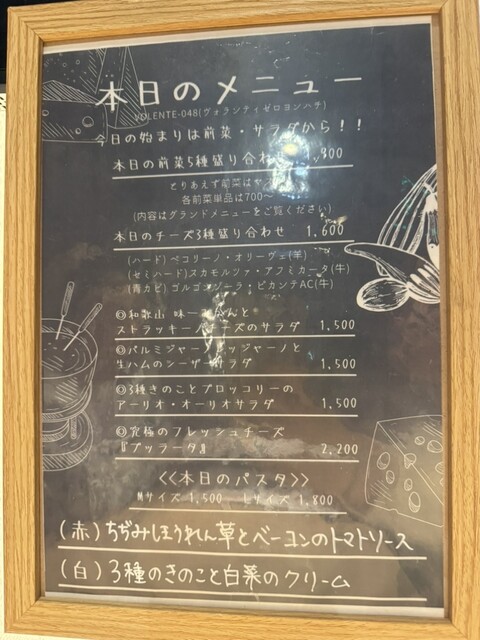 本日のメニュー
VOLENTE-048(ヴォランティゼロヨンハチ)
今日の始まりは前菜・サラダから！！
本日の前菜5種盛り合わ
とりあえず前菜は
各前菜単品は700～
(内容はグランドメニューをご覧ください)
本日のチーズ3種盛り合わせ 1,600
(ハード)ペコリーノ・オリーヴェ(羊)
(セミハード)スカモルツァ・アフミカータ(牛)
(青カビ)ゴルゴンゾーラ・ピカンテAC(牛)
◎和歌山 味一みかんと
ストラッキーノチーズのサラダ 1,500
◎パルミジャーノレッジャーノと
生ハムのシーザーサラダ 1,500
◎3種きのことブロッコリーの
アーリオ・オーリオサラダ 1,500
◎究極のフレッシュチーズ
『ブッラータ』 2,200
<<本日のパスタ>>
Mサイズ 1,500 Lサイズ 1,800
(赤)ちぢみほうれん草とベーコンのトマトソース
(白)3種のきのこと白菜のクリーム